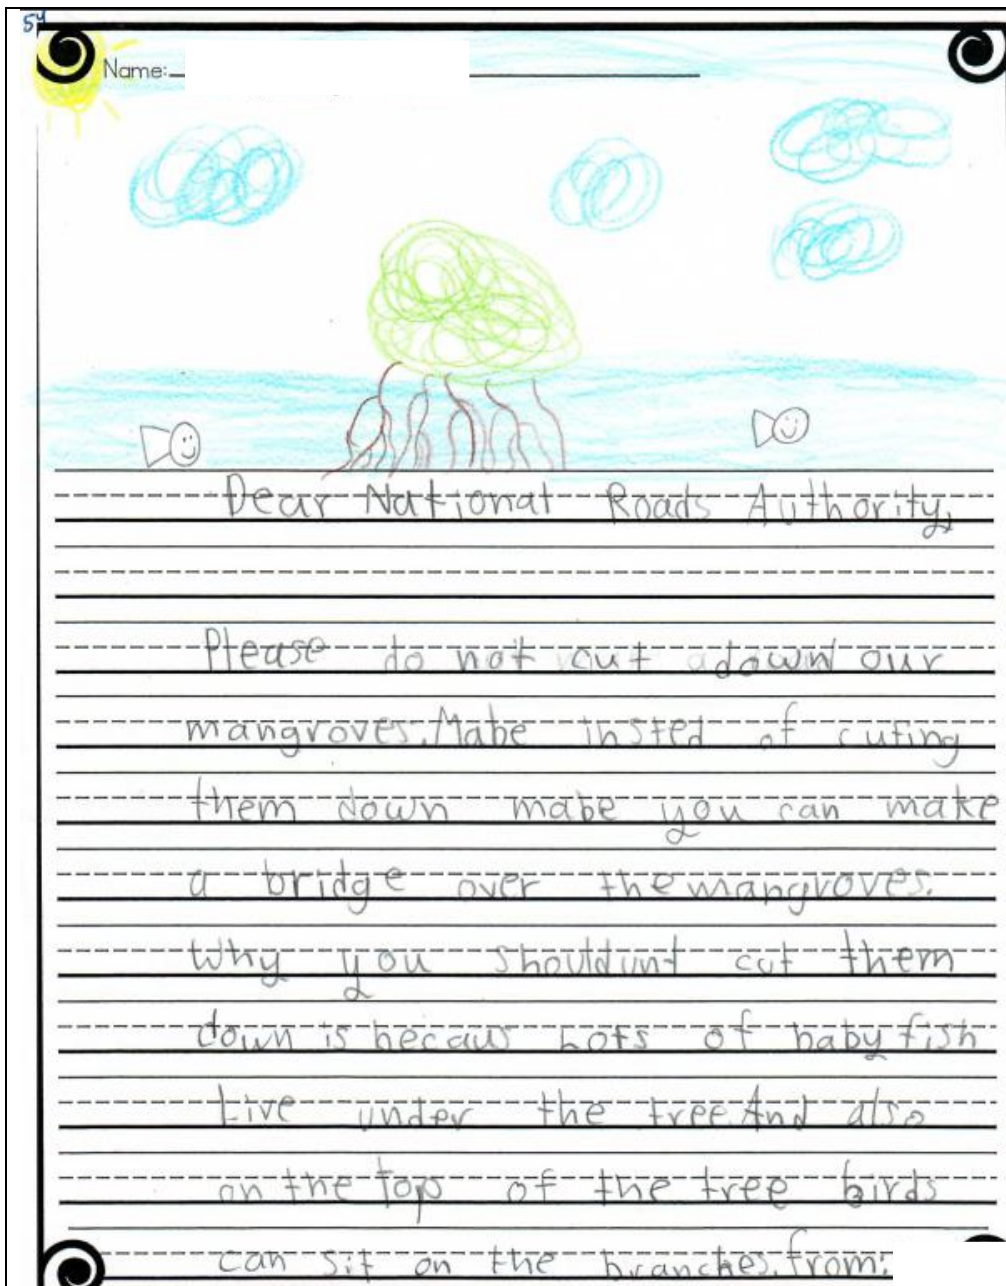 54
Name:
Dear National Roads Authority,
Please do not cut down our
mangroves. Mabe insted of cuting
them down mabe you can make
a bridge over the mangroves.
Why you shouldunt cut them
down is becaus Lots of baby fish
Live under the tree. And also
on the top of the tree birds
can sit on the branches. from: